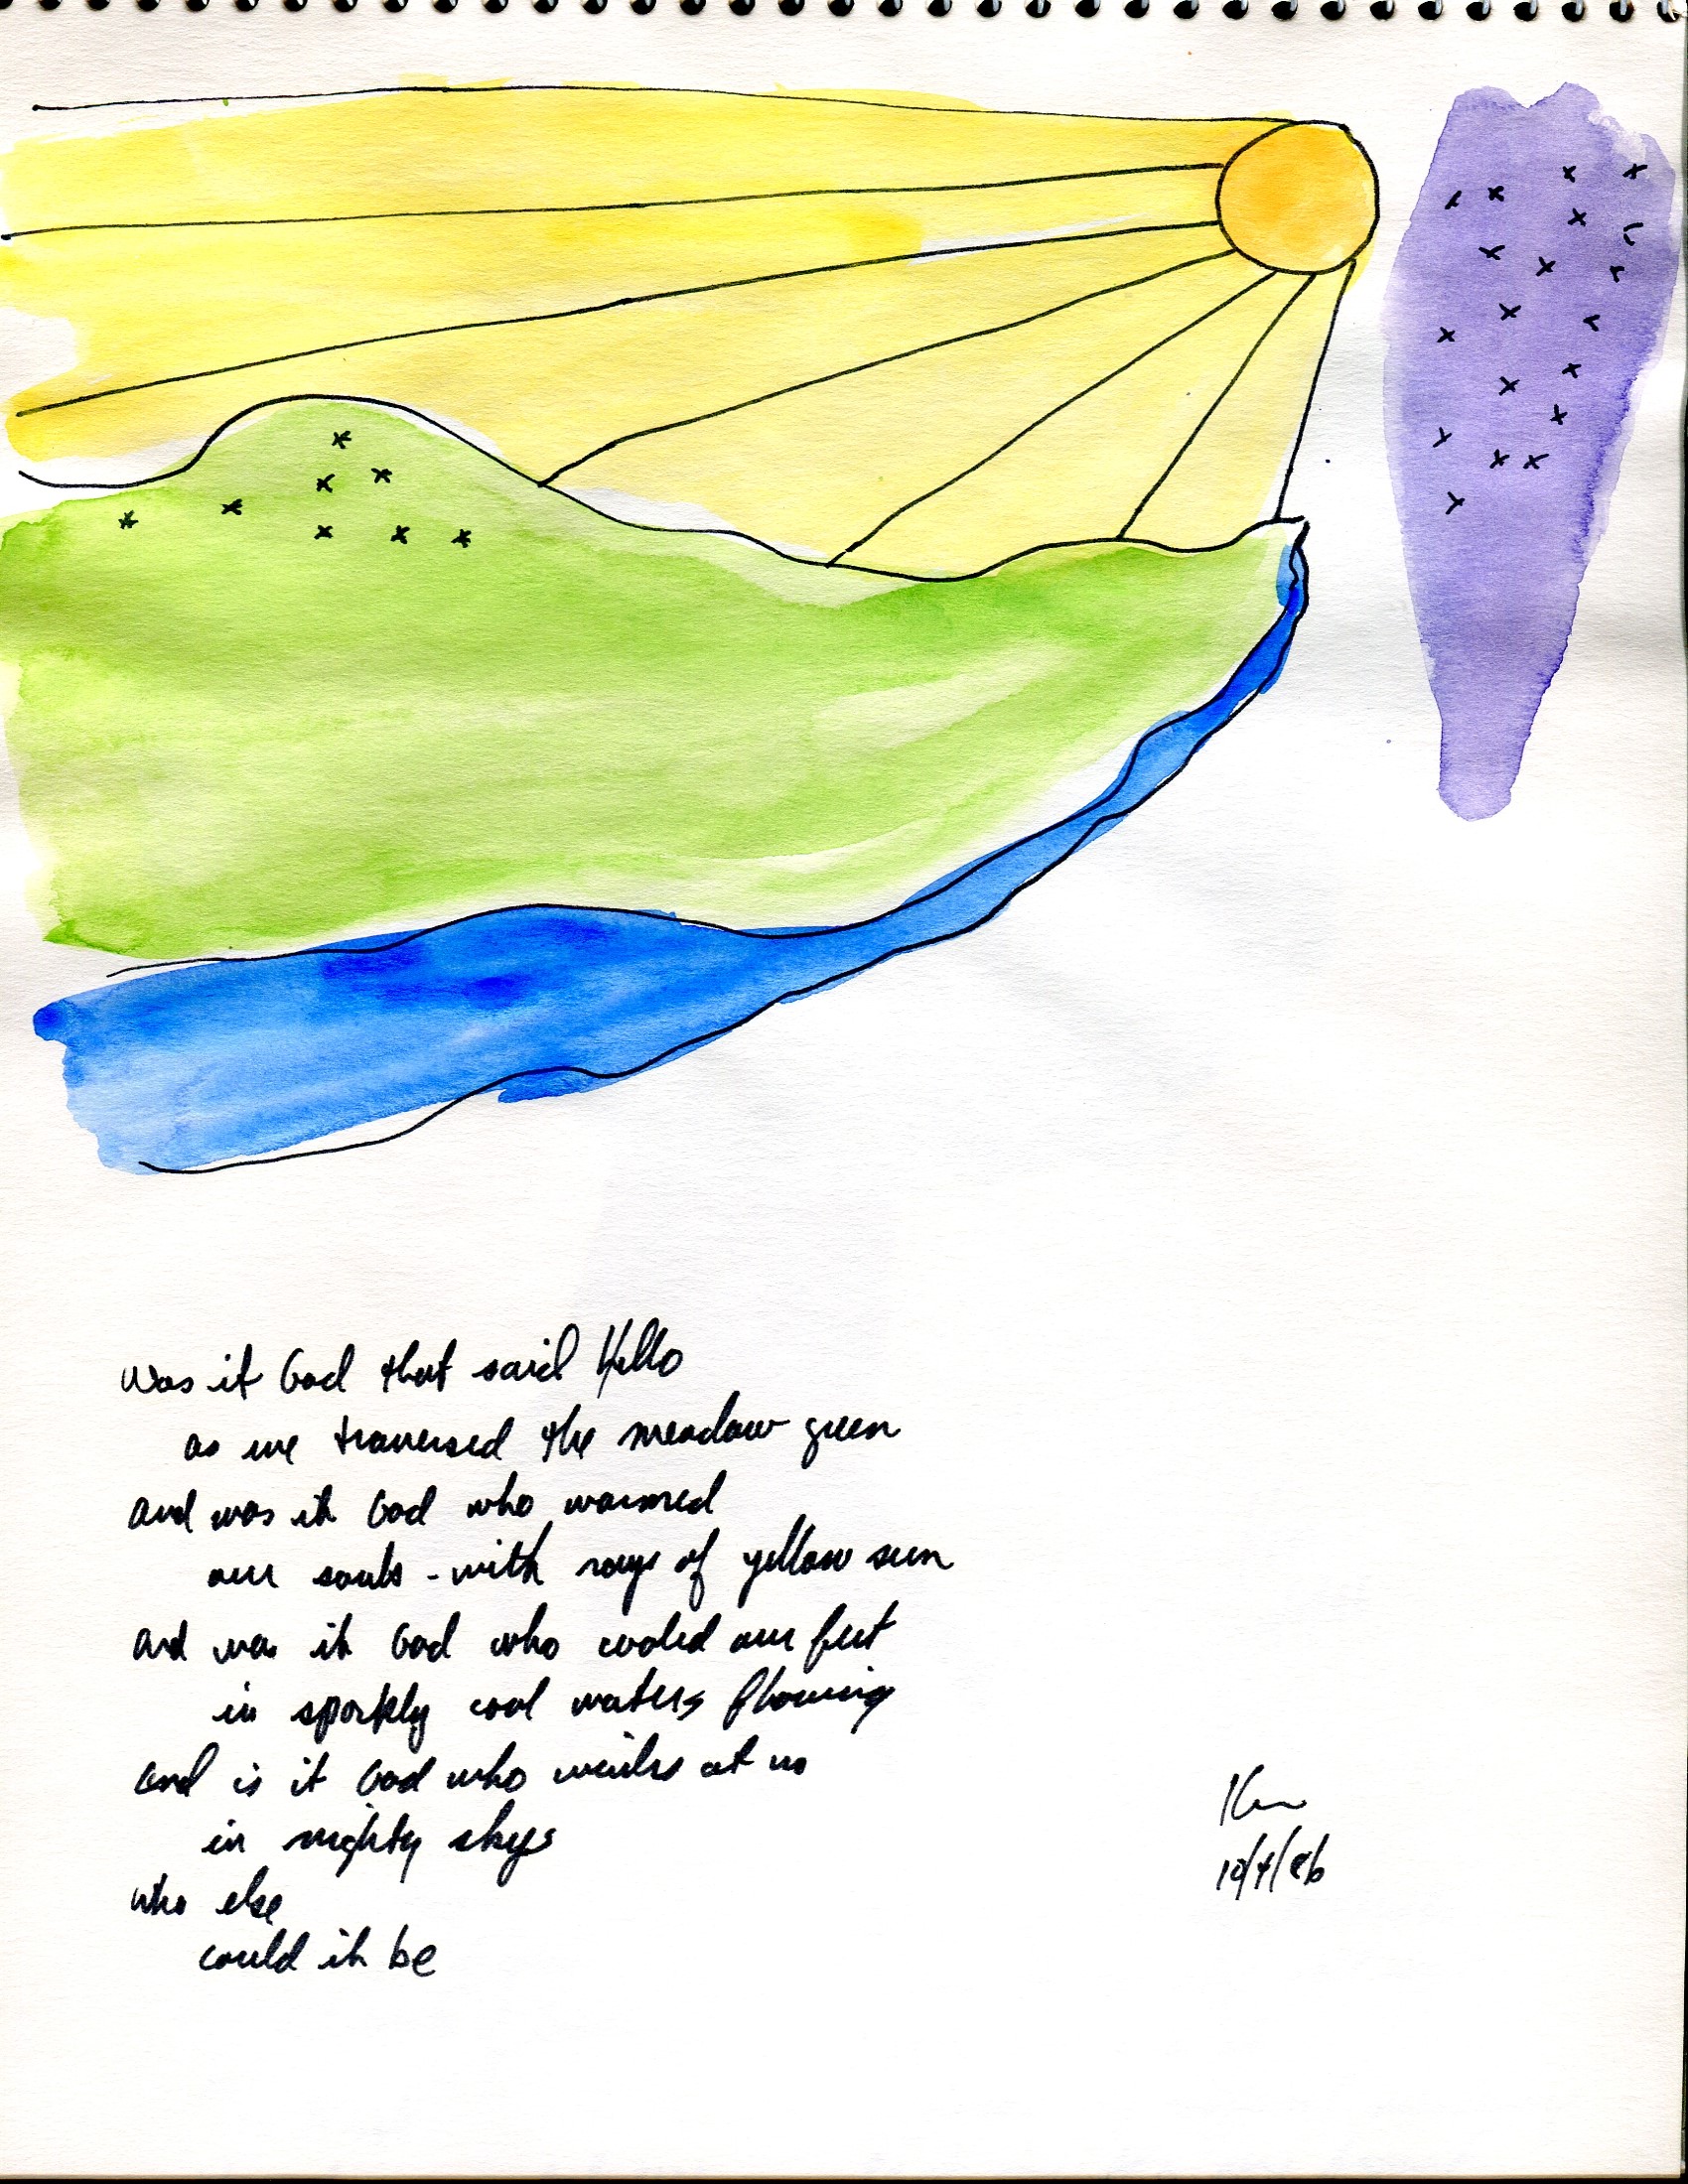 Was it God that said Hello
as we traversed the meadow green
and was it God who warmed
our souls - with rays of yellow sun
and was it God who cooled our feet
in sparkly cool waters flowing
and is it God who winks at us
in nighty skys
who else
could it be
Ken
10/4/86